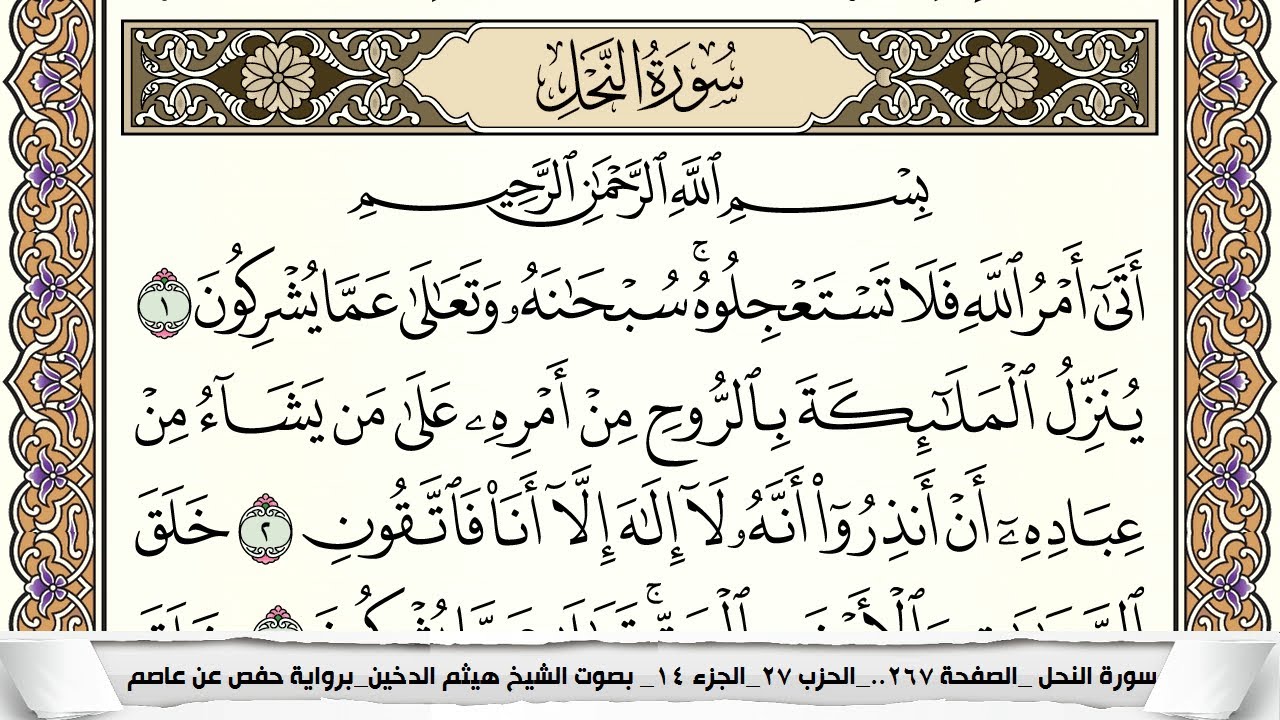 سُورَةُ النَّحْلِ
بِسْمِ ٱللَّهِ ٱلرَّحْمَٰنِ ٱلرَّحِيمِ
أَتَىٰٓ أَمْرُ ٱللَّهِ فَلَا تَسْتَعْجِلُوهُۚ سُبْحَٰنَهُۥ وَتَعَٰلَىٰ عَمَّا يُشْرِكُونَ ١
يُنَزِّلُ ٱلْمَلَٰٓئِكَةَ بِٱلرُّوحِ مِنْ أَمْرِهِۦ عَلَىٰ مَن يَشَآءُ مِنْ
عِبَادِهِۦٓ أَنْ أَنذِرُوٓا۟ أَنَّهُۥ لَآ إِلَٰهَ إِلَّآ أَنَا۠ فَٱتَّقُونِ ٢ خَلَقَ
سورة النحل _الصفحة ٢٦٧.._الحزب ٢٧_الجزء ١٤_ بصوت الشيخ هيثم الدخين_برواية حفص عن عاصم